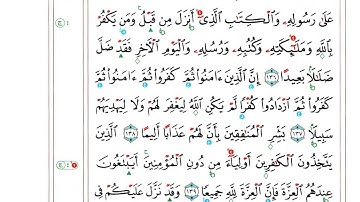 عَلَىٰ رَسُولِهِۦ وَٱلۡكِتَٰبِ ٱلَّذِيٓ أَنزَلَ مِن قَبۡلُۚ وَمَن يَكۡفُرۡ
بِٱللَّهِ وَمَلَٰٓئِكَتِهِۦ وَكُتُبِهِۦ وَرُسُلِهِۦ وَٱلۡيَوۡمِ ٱلۡأٓخِرِ فَقَدۡ ضَلَّ
ضَلَٰلَۢا بَعِيدًا ١٣٦ إِنَّ ٱلَّذِينَ ءَامَنُواْ ثُمَّ كَفَرُواْ ثُمَّ ءَامَنُواْ ثُمَّ
كَفَرُواْ ثُمَّ ٱزۡدَادُواْ كُفۡرٗا لَّمۡ يَكُنِ ٱللَّهُ لِيَغۡفِرَ لَهُمۡ وَلَا لِيَهۡدِيَهُمۡ
سَبِيلَۢا ١٣٧ بَشِّرِ ٱلۡمُنَٰفِقِينَ بِأَنَّ لَهُمۡ عَذَابًا أَلِيمًا ١٣٨ ٱلَّذِينَ
يَتَّخِذُونَ ٱلۡكَٰفِرِينَ أَوۡلِيَآءَ مِن دُونِ ٱلۡمُؤۡمِنِينَۚ أَيَبۡتَغُونَ
عِندَهُمُ ٱلۡعِزَّةَ فَإِنَّ ٱلۡعِزَّةَ لِلَّهِ جَمِيعٗا ١٣٩ وَقَدۡ نَزَّلَ عَلَيۡكُمۡ فِي